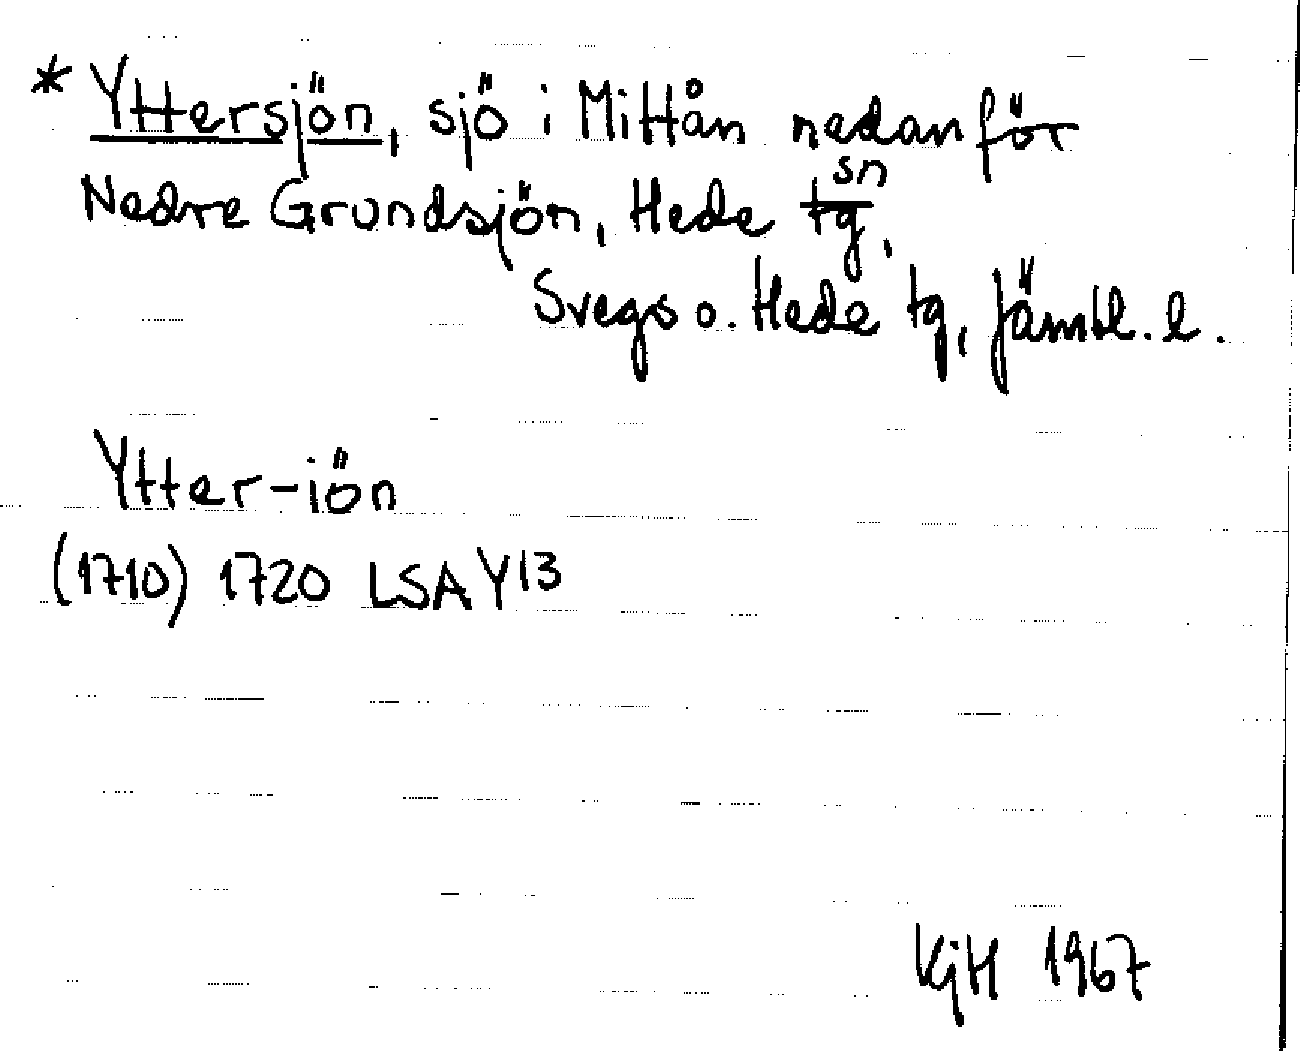 * Yttersjön, sjö i Mittån nedanför
Nedre Grundsjön, Hede sn,
Svegs o. Hede tg, Jämtl. l.
Ytter-iön
(1710) 1720 LSA Y13
KjH 1967